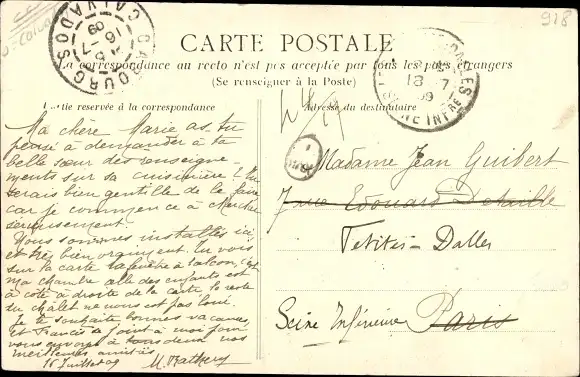 918
CARTE POSTALE
La correspondance au recto n'est pas acceptée par tous les pays étrangers
(Se renseigner à la Poste)
tie reservée à la correspondance
Adresse du destinataire
CABOURG
CALVADOS
16 -7
09
18 -7
09
Ma chère Marie as-tu
pensé à demander à ta
belle sœur des renseigne-
ments sur sa cuisinière ? tu
serais bien gentille de le faire
car je commence à chercher
sérieusement.
Nous sommes installés ici
et très bien vraiment. Tu vois
sur la carte la fenêtre à balcon, c'est
ma chambre celle des enfants est
à côté à droite de la carte le reste
du châlet ne nous est pas loué.
Je te souhaite bonnes vacances
et Francis se joint à moi pour
vous envoyer à tous deux nos
meilleures amitiés
16 Juillet 09
Madame Jean Guibert
7 rue Edouard Detaille
Petites-Dalles
Seine Inférieure Paris